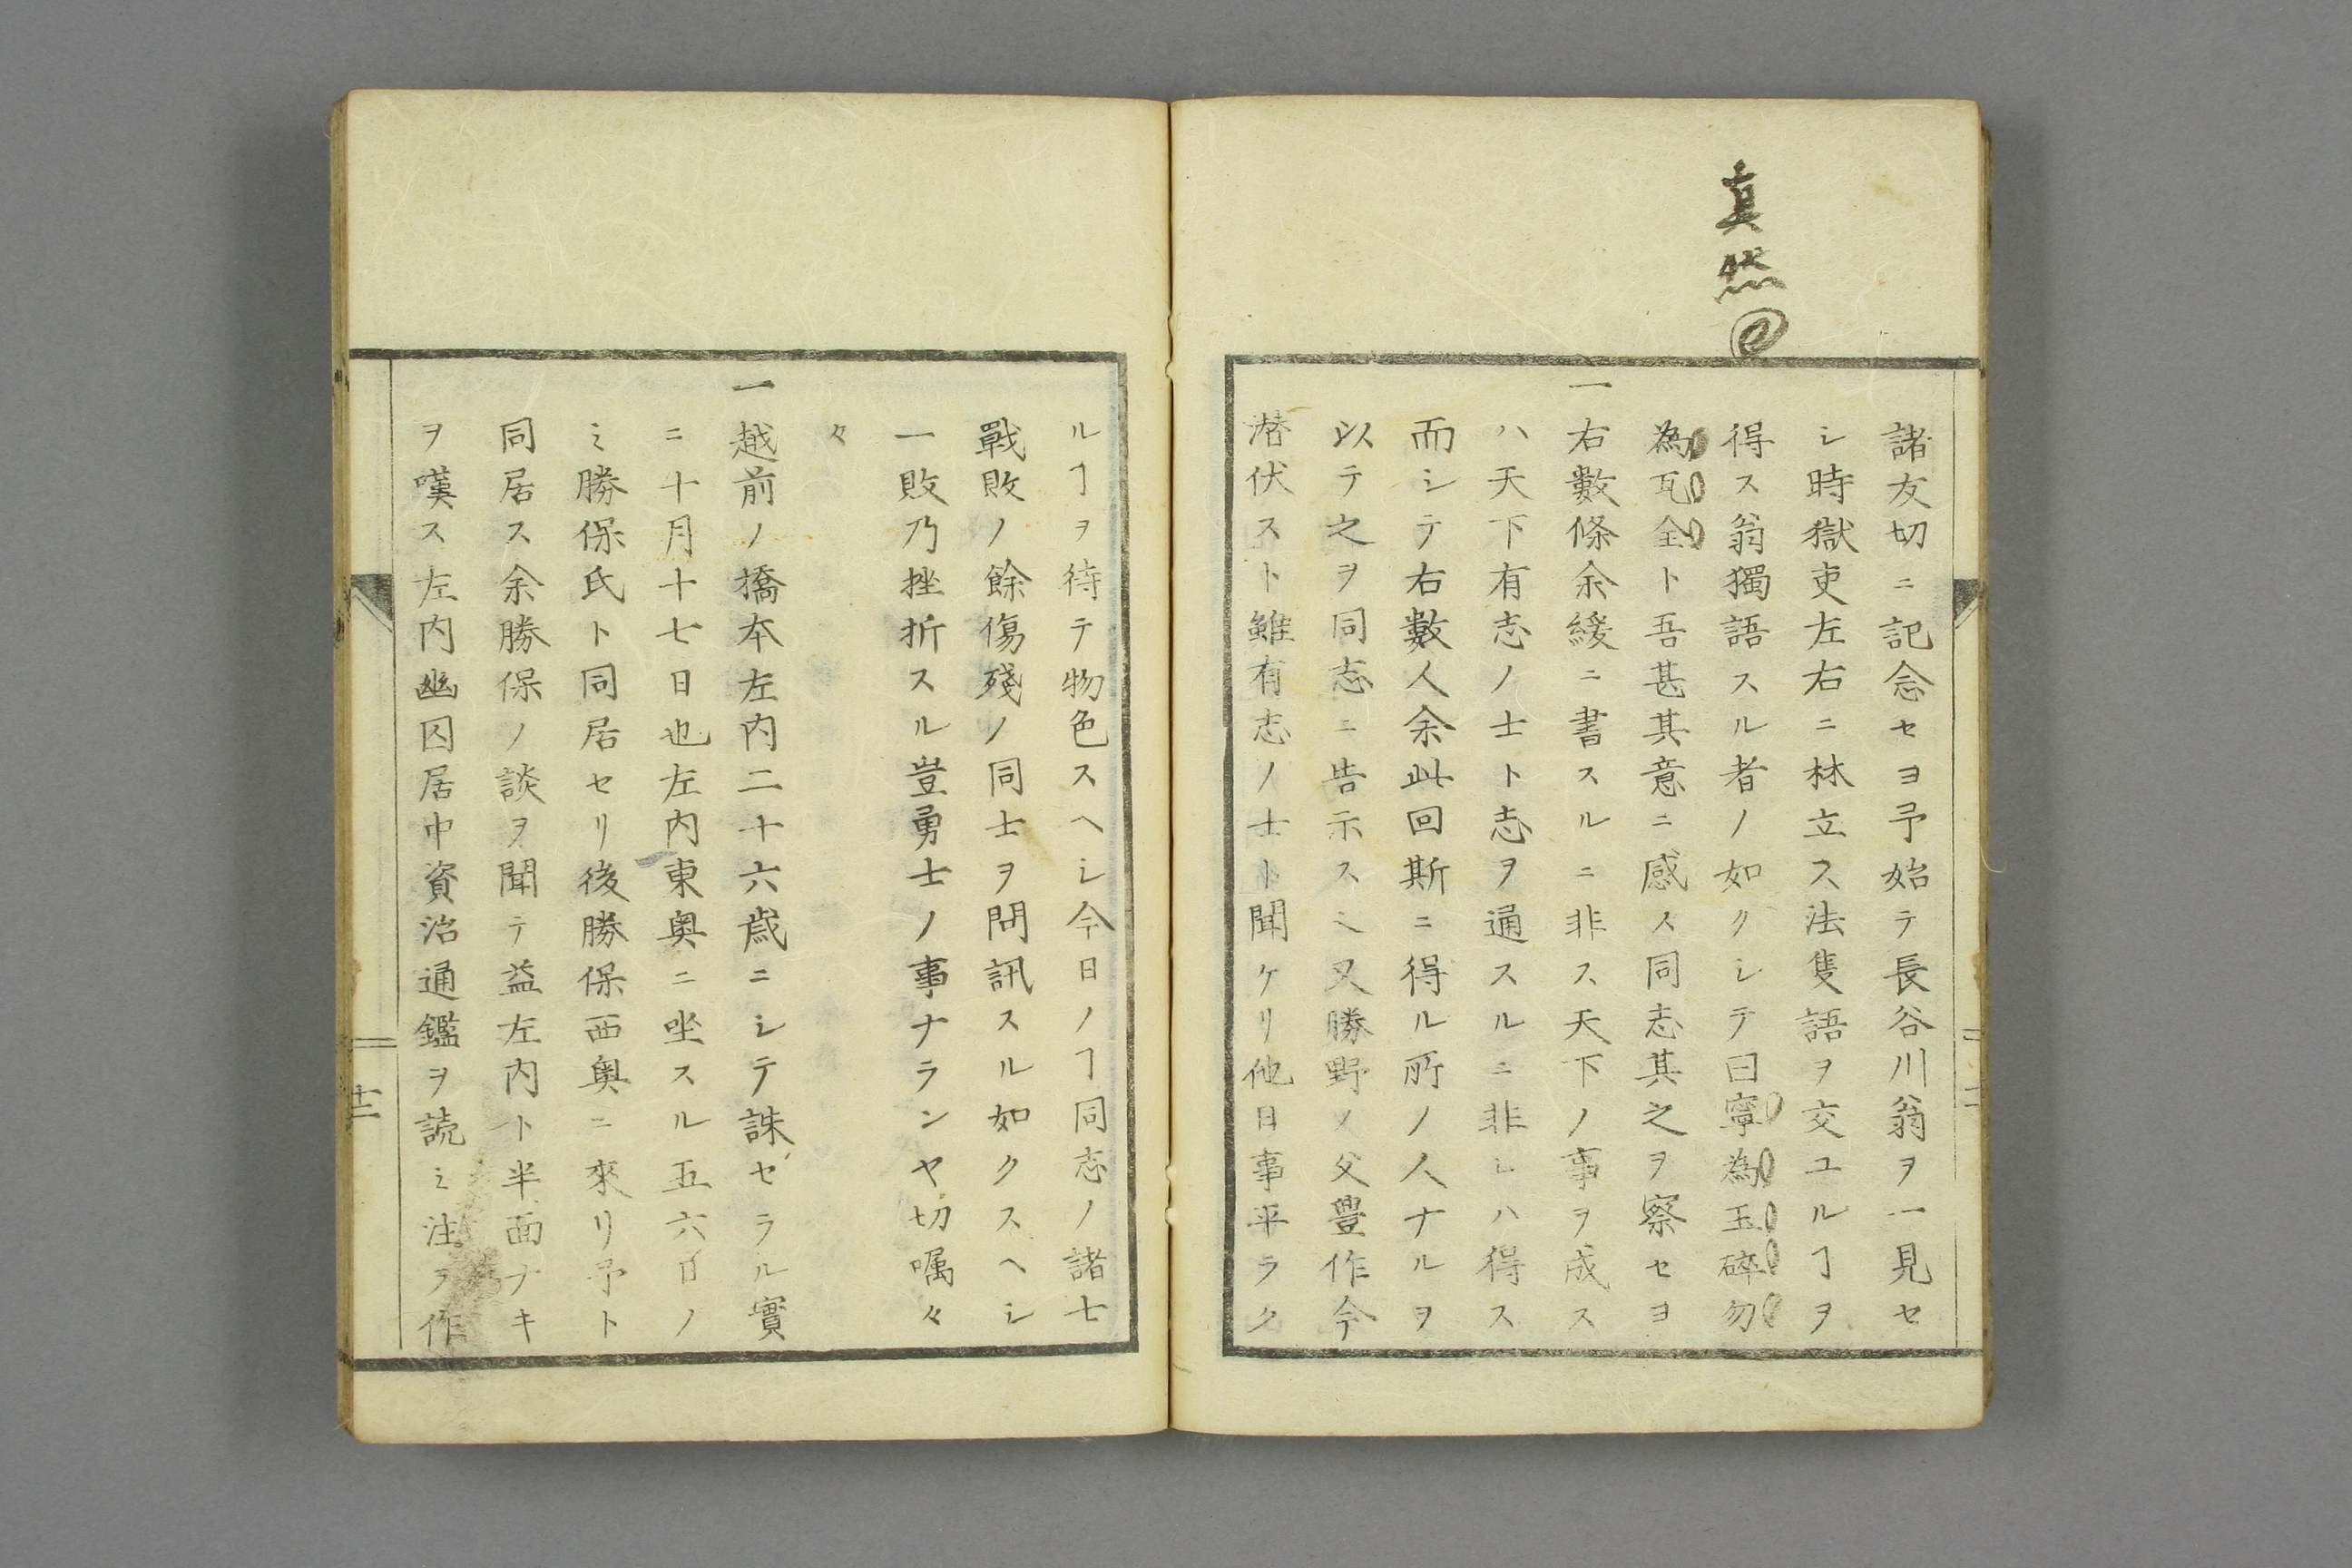 真然
諸友切ニ記念セヨ予始テ長谷川翁ヲ一見セ
シ時獄吏左右ニ林立ス法隻語ヲ交ユルヿヲ
得ス翁獨語スル者ノ如クシテ曰寧為玉碎勿
為瓦全ト吾甚其意ニ感ス同志其之ヲ察セヨ
一右數條余緩ニ書スルニ非ス天下ノ事ヲ成ス
ハ天下有志ノ士ト志ヲ通スルニ非レハ得ス
而シテ右數人余此回斯ニ得ル所ノ人ナルヲ
以テ之ヲ同志ニ告示スミ又勝野ノ父豊作今
潜伏スト雖有志ノ士ト聞ケリ他日事平ラク
ルヿヲ待テ物色スヘシ今日ノヿ同志ノ諸士
戰敗ノ餘傷殘ノ同士ヲ問訊スル如クスヘシ
一敗乃挫折スル豈勇士ノ事ナランヤ切嘱々
々
一越前ノ橋本左内二十六歳ニシテ誅セラル實
ニ十月十七日也左内東奥ニ坐スル五六日ノ
ミ勝保氏ト同居セリ後勝保西奥ニ來リ予ト
同居ス余勝保ノ談ヲ聞テ益左内ト半面ナキ
ヲ嘆ス左内幽囚居中資治通鑑ヲ読ミ注ヲ作
十二